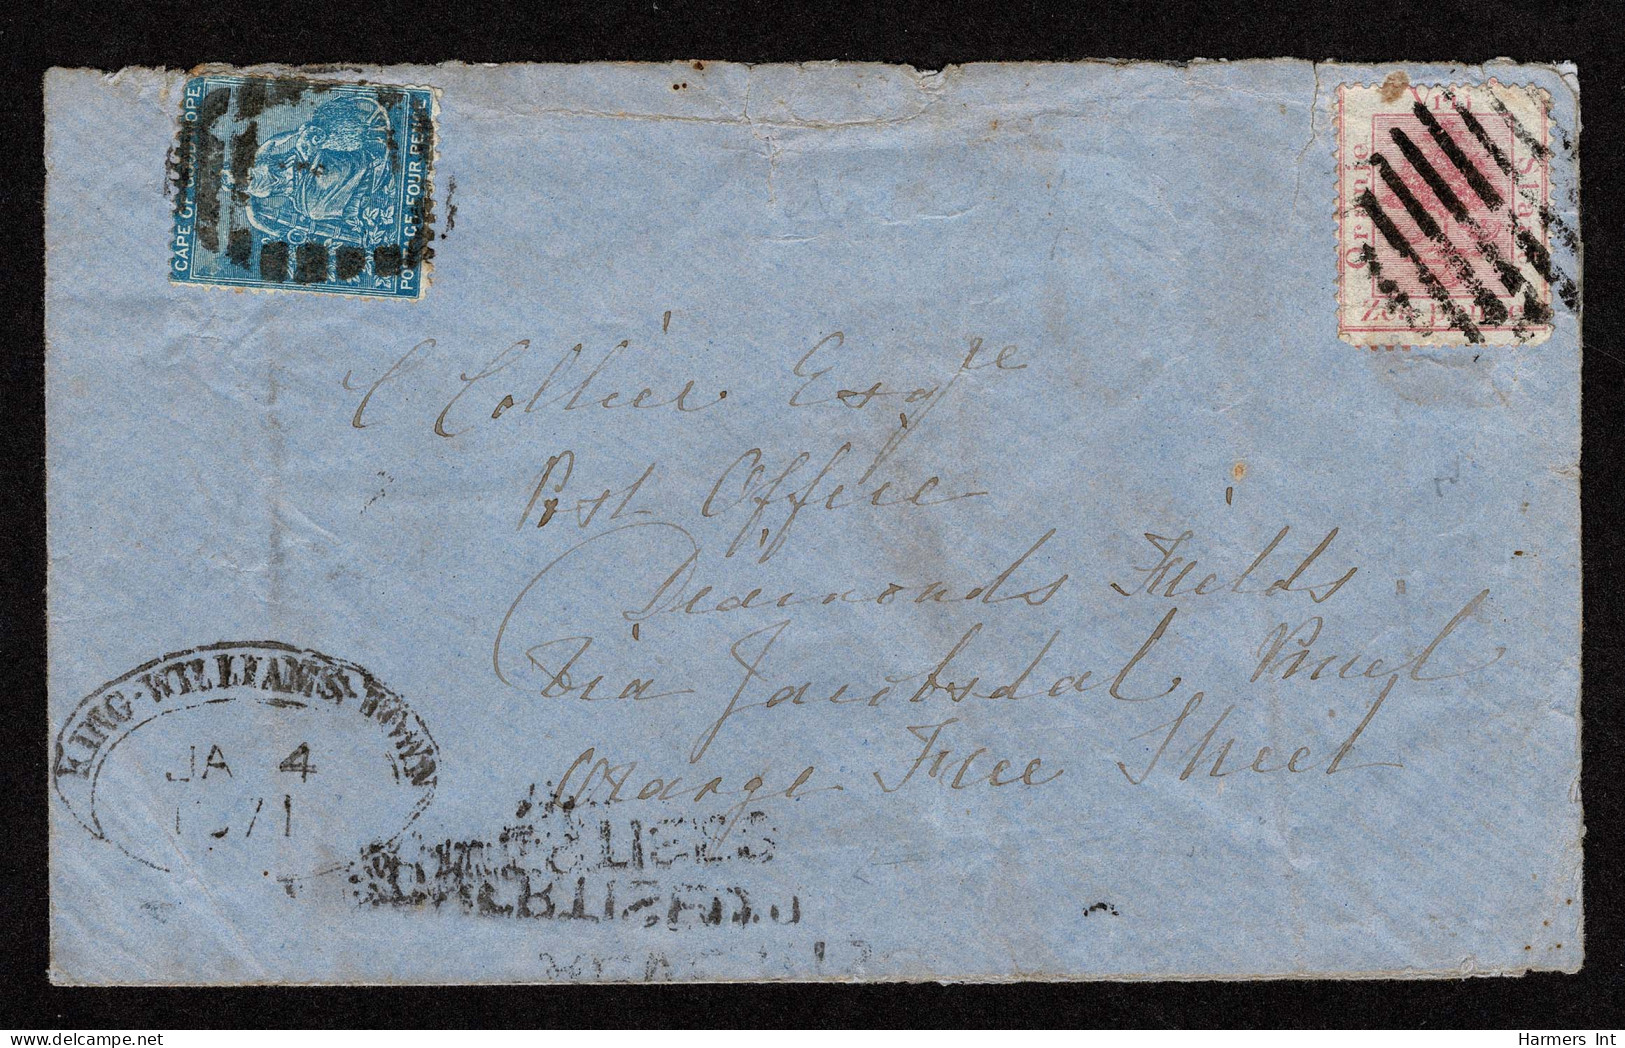 CAPE OF GOOD HOPE
POSTAGE FOUR PENCE
Vrij
Oranje
Staat
Zes pence
C Collier Esqre
Post Office
Diamonds Fields
Via Jacobsdal
Orange Free Sheet
KING-WILLIAMS-TOWN
JA 4
1871
Harmers Int